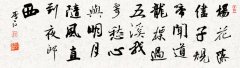 楊花落
盡子規
啼聞道
龍標過
五溪我
寄愁心
與明月
隨風直
到夜郎
西